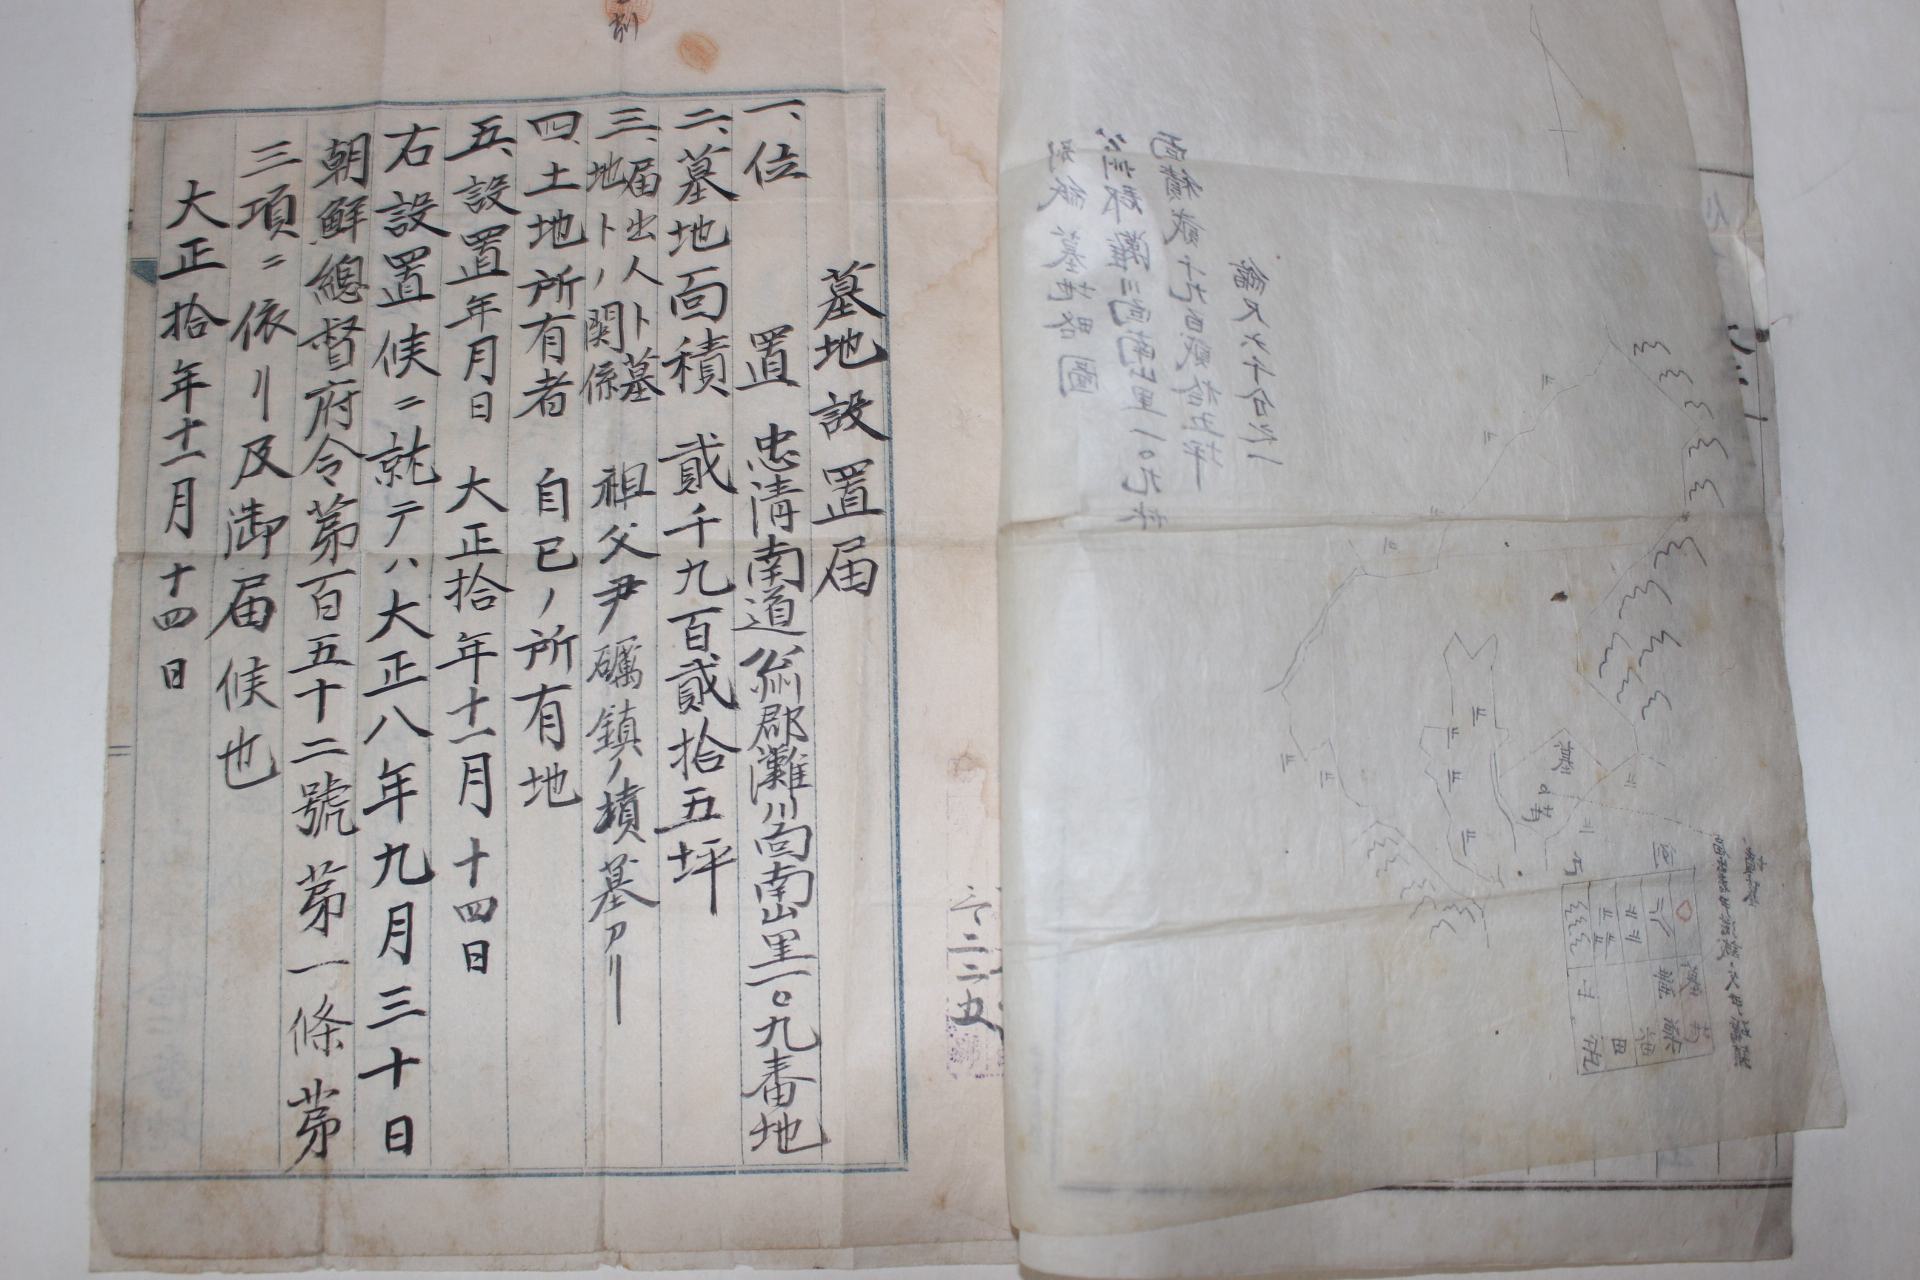 墓地設置届
一、位置 忠清南道公州郡灘川面南山里一〇九番地
二、墓地面積 貳千九百貳拾五坪
三、届出人ト墓地トノ関係 祖父尹礪鎮ノ墳墓アリ
四、土地所有者 自己ノ所有地
五、設置年月日 大正拾年十一月十四日
右設置候ニ就テハ大正八年九月三十日
朝鮮總督府令第百五十二號第一條第
三項ニ依リ及御届候也
大正拾年十一月十四日
墓地略圖
公州郡灘川面南山里一〇九
面積貳千九百貳拾五坪
縮尺六千分之一